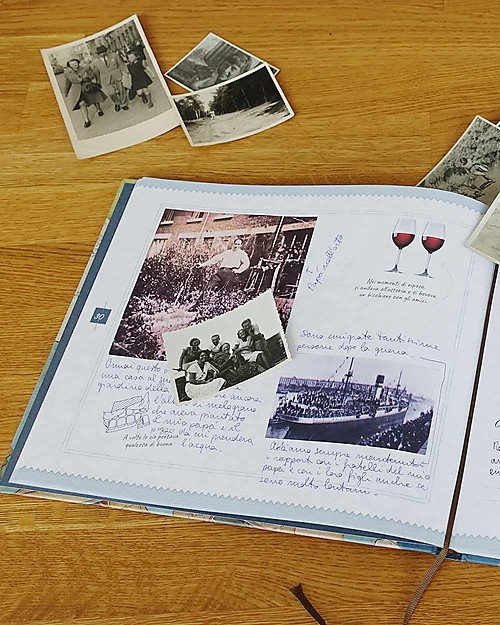 Papà nell'orto
Nei momenti di riposo,
si andava all'osteria e si beveva
un bicchiere con gli amici.
Sono emigrate tantissime
persone dopo la guerra.
30
Ormai questo è
una casa al su
giardino della
l'al che ancora,
il melograno
che aveva piantato
il mio papà e il
pozzo da cui prendeva
l'acqua.
A volte lo zio portava
qualcosa di buono.
Abbiamo sempre mantenuto
i rapporti con i fratelli del mio
papà e con i loro figli anche se
sono molto lontani.